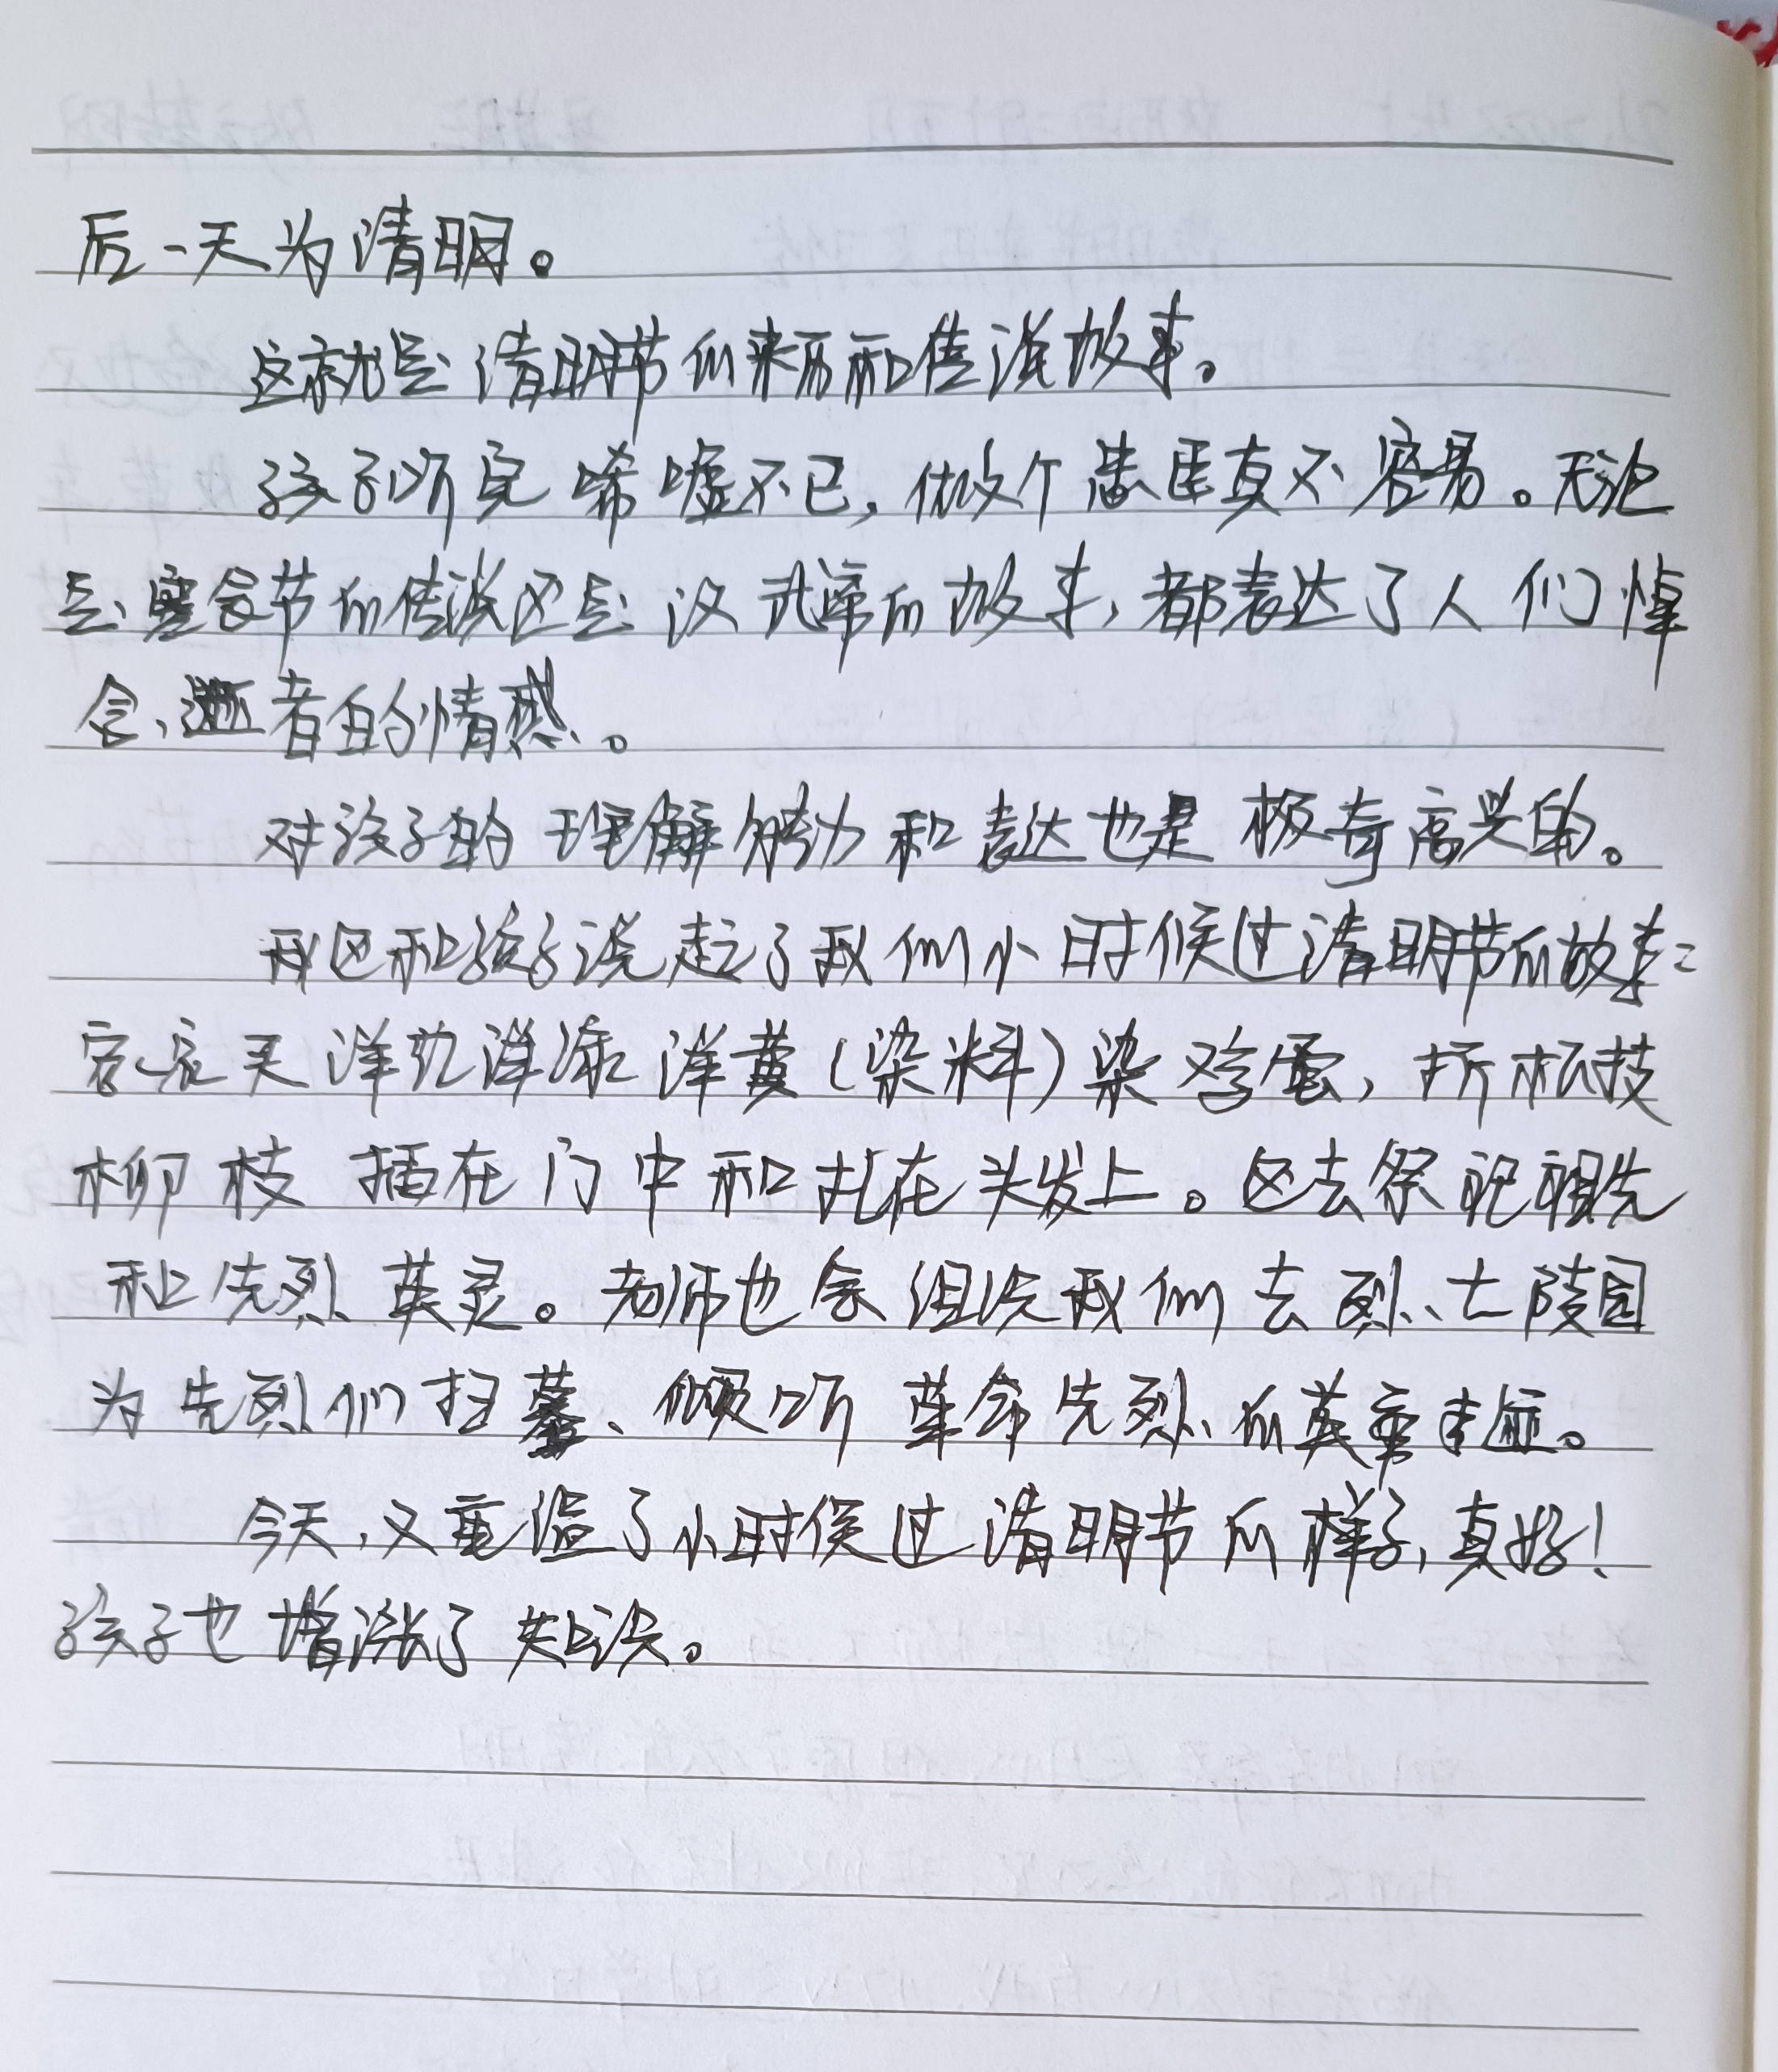 后一天为清明。
这就是清明节的来历和传说故事。
孩子听完唏嘘不已，做个忠臣真不容易。无论
是寒食节的传说还是汉武帝的故事，都表达了人们悼
念逝者的情感。
对孩子的理解能力和表达也是极奇高兴的。
我还和孩子说起了我们小时候过清明节的故事：
家家买洋红洋绿洋黄（染料）染鸡蛋，折松枝
柳枝插在门中和扎在头发上。还去祭祀祖先
和先烈英灵。老师也会组织我们去烈士陵园
为先烈们扫墓、倾听革命先烈的英雄事迹。
今天，又重温了小时候过清明节的样子，真好！
孩子也增涨了知识。